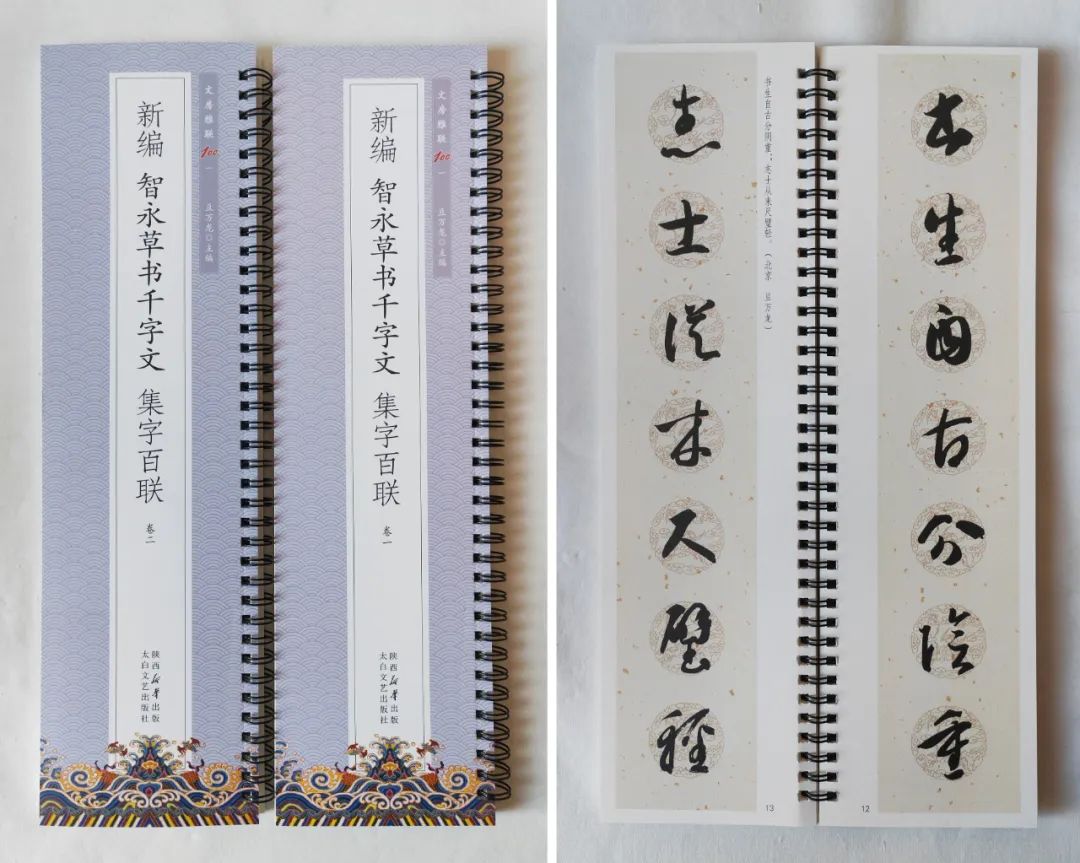 文房雅联 100 一
万龙◎主编
新编 智永草书千字文 集字百联 卷二
陕西新华出版
太白文艺出版社
文房雅联 100 一
万龙◎主编
新编 智永草书千字文 集字百联 卷一
陕西新华出版
太白文艺出版社
書生自古分陰重
12
书生自古分阴重；志士从来尺璧轻。（北京 万龙）
志士從來尺璧輕
13